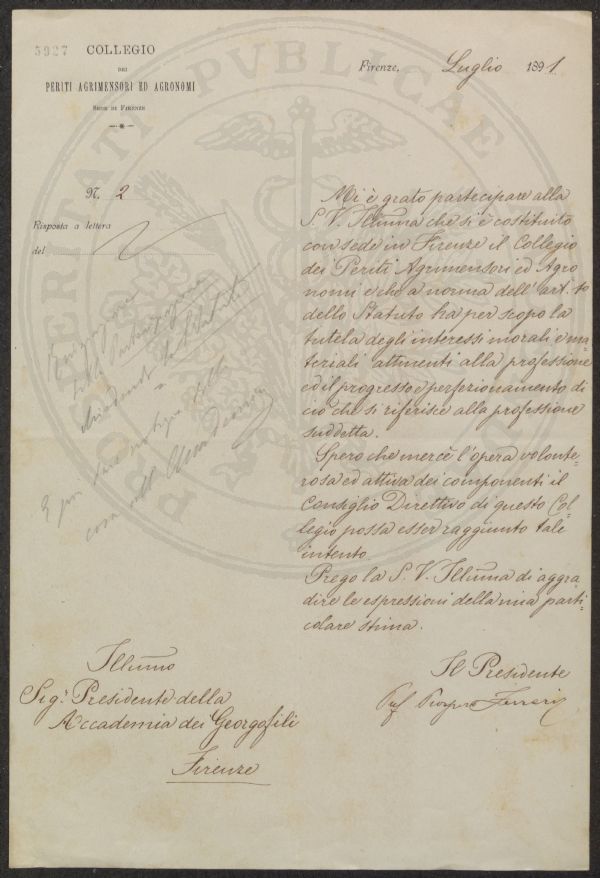 5927
COLLEGIO
DEI
PERITI AGRIMENSORI ED AGRONOMI
SEDE DI FIRENZE
Firenze, Luglio 1891
N. 2
Risposta a lettera
del
Mi è grato partecipare alla
S. V. Illuma che si è costituito
con sede in Firenze il Collegio
dei Periti Agrimensori ed Agro
nomi e che a norma dell' art. 10
dello Statuto ha per scopo la
tutela degli interessi morali e ma=
teriali attinenti alla professione
ed il progresso e perfezionamento di
ciò che si riferisce alla professione
suddetta.
Spero che mercè l'opera volonte=
rosa ed attiva dei componenti il
Consiglio Direttivo di questo Col=
legio possa esser raggiunto tale
intento
Prego la S. V. Illuma di aggra=
dire le espressioni della mia parti=
colare stima.
Il Presidente
Illumo
Sigr. Presidente della
Accademia dei Georgofili
Firenze
PROSPERITATI PUBLICAE